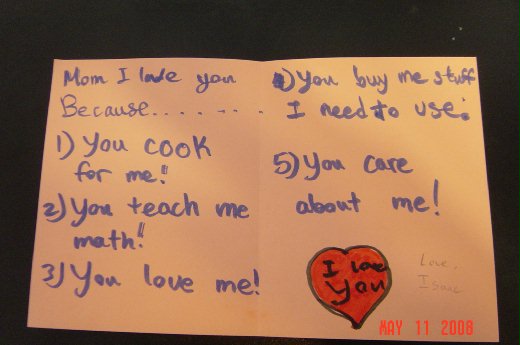 Mom I love you
Because.........
1) You cook
for me!
2) You teach me
math!
3) You love me!
4) You buy me stuff
I need to use.
5) You care
about me!
I love
You
Love,
Isaac
MAY 11 2008